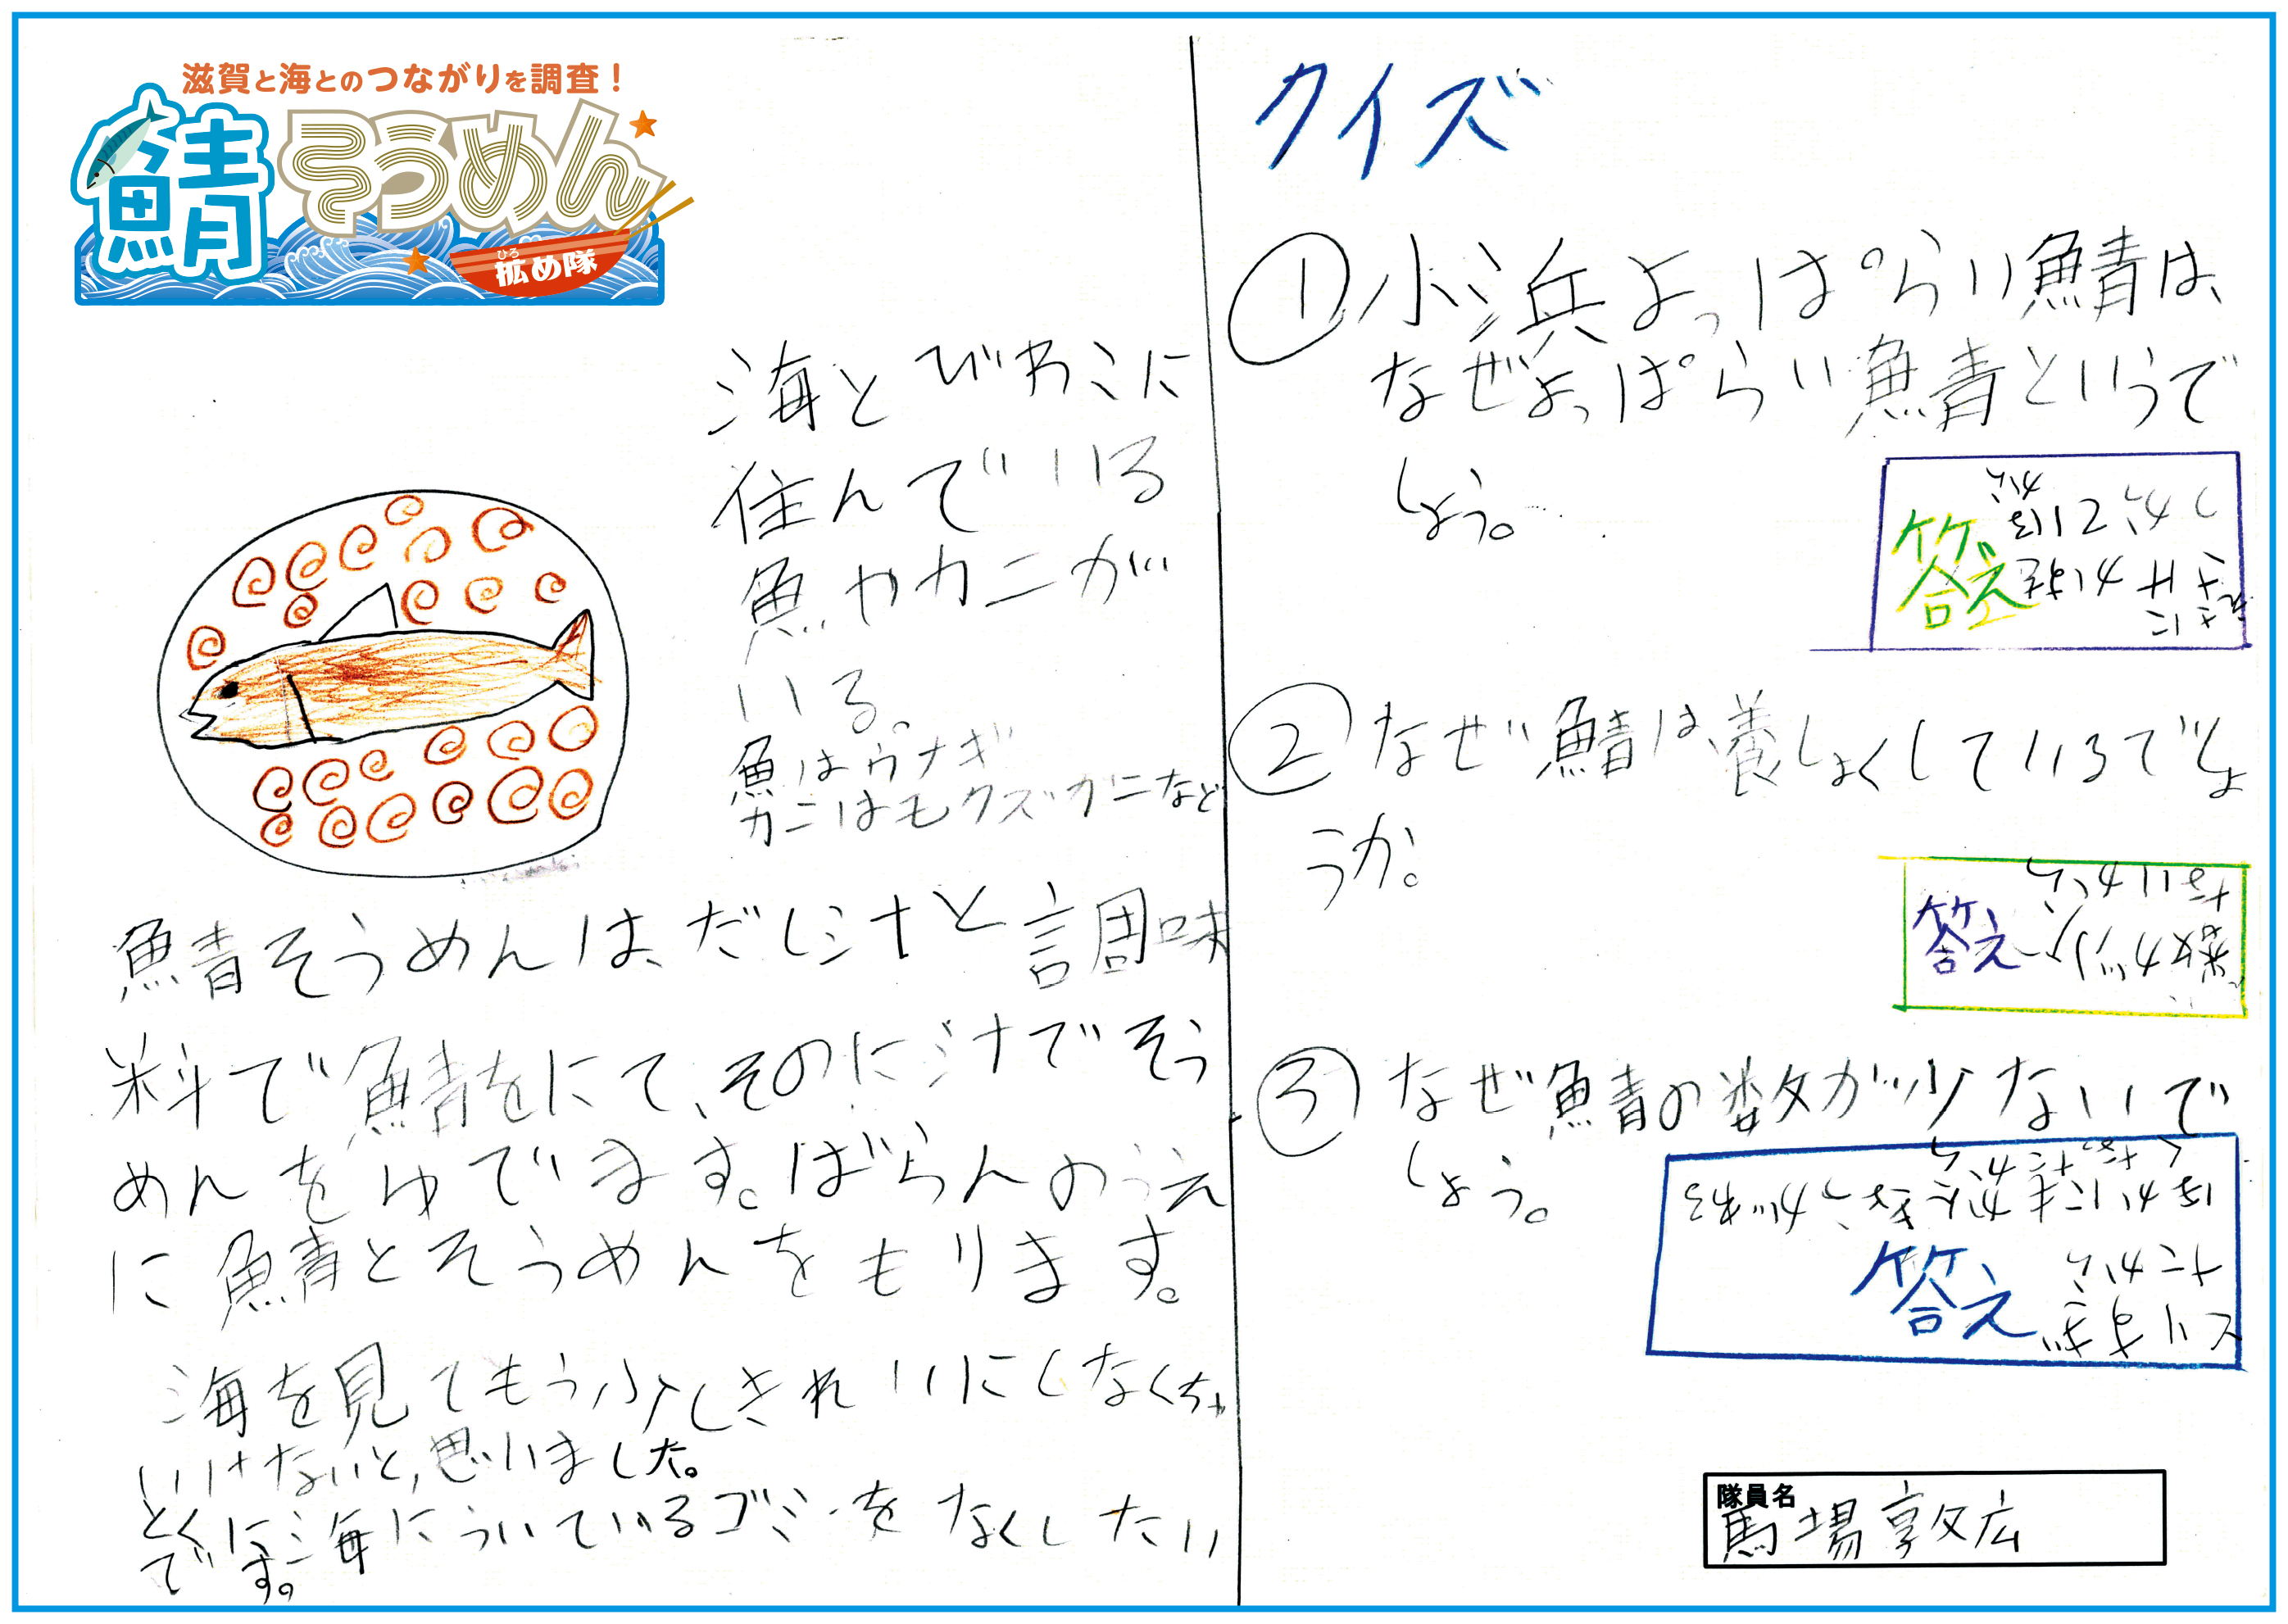 滋賀と海とのつながりを調査！
鯖そうめん
ひろ
拡め隊
海とびわこに
住んでいる
魚やカニが
いる。
魚はウナギ
カニはモクズガニなど
鯖そうめんは、だし汁と調味
料で鯖をにて、そのに汁でそう
めんをゆでいます。ばらんのうえ
に鯖とそうめんをもります。
海を見てもう少しきれいにしなくちゃ
いけないと,思いました。
とくに海にういているゴミをなくしたい
です。
クイズ
①小浜よっぱらい鯖は、
なぜよっぱらい鯖というで
しょう。
答え
えさに
さけかすを
つかている
から
②なぜ鯖は、養しょくしているでしょ
うか。
答え
数が少
ないから
③なぜ鯖の数が少ないで
しょう。
答え
とりすぎ
たから
ほかにもかんきょうがわる
くなったから
隊員名
馬場敦広